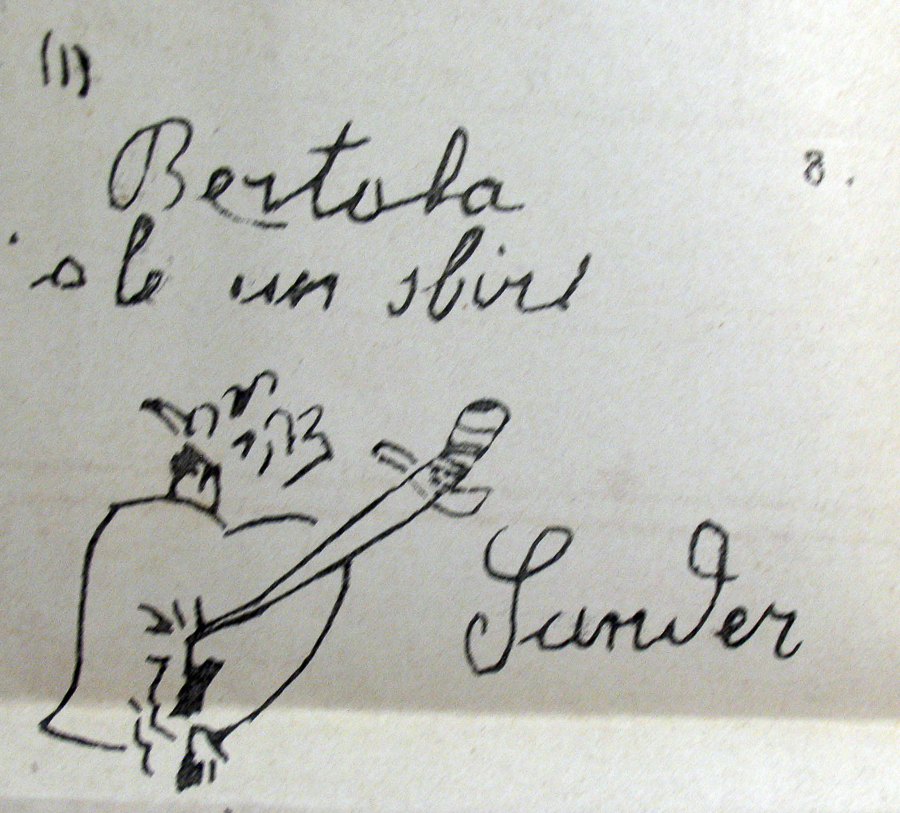 (1)
Bertola
8.
è le un sbire
Sander